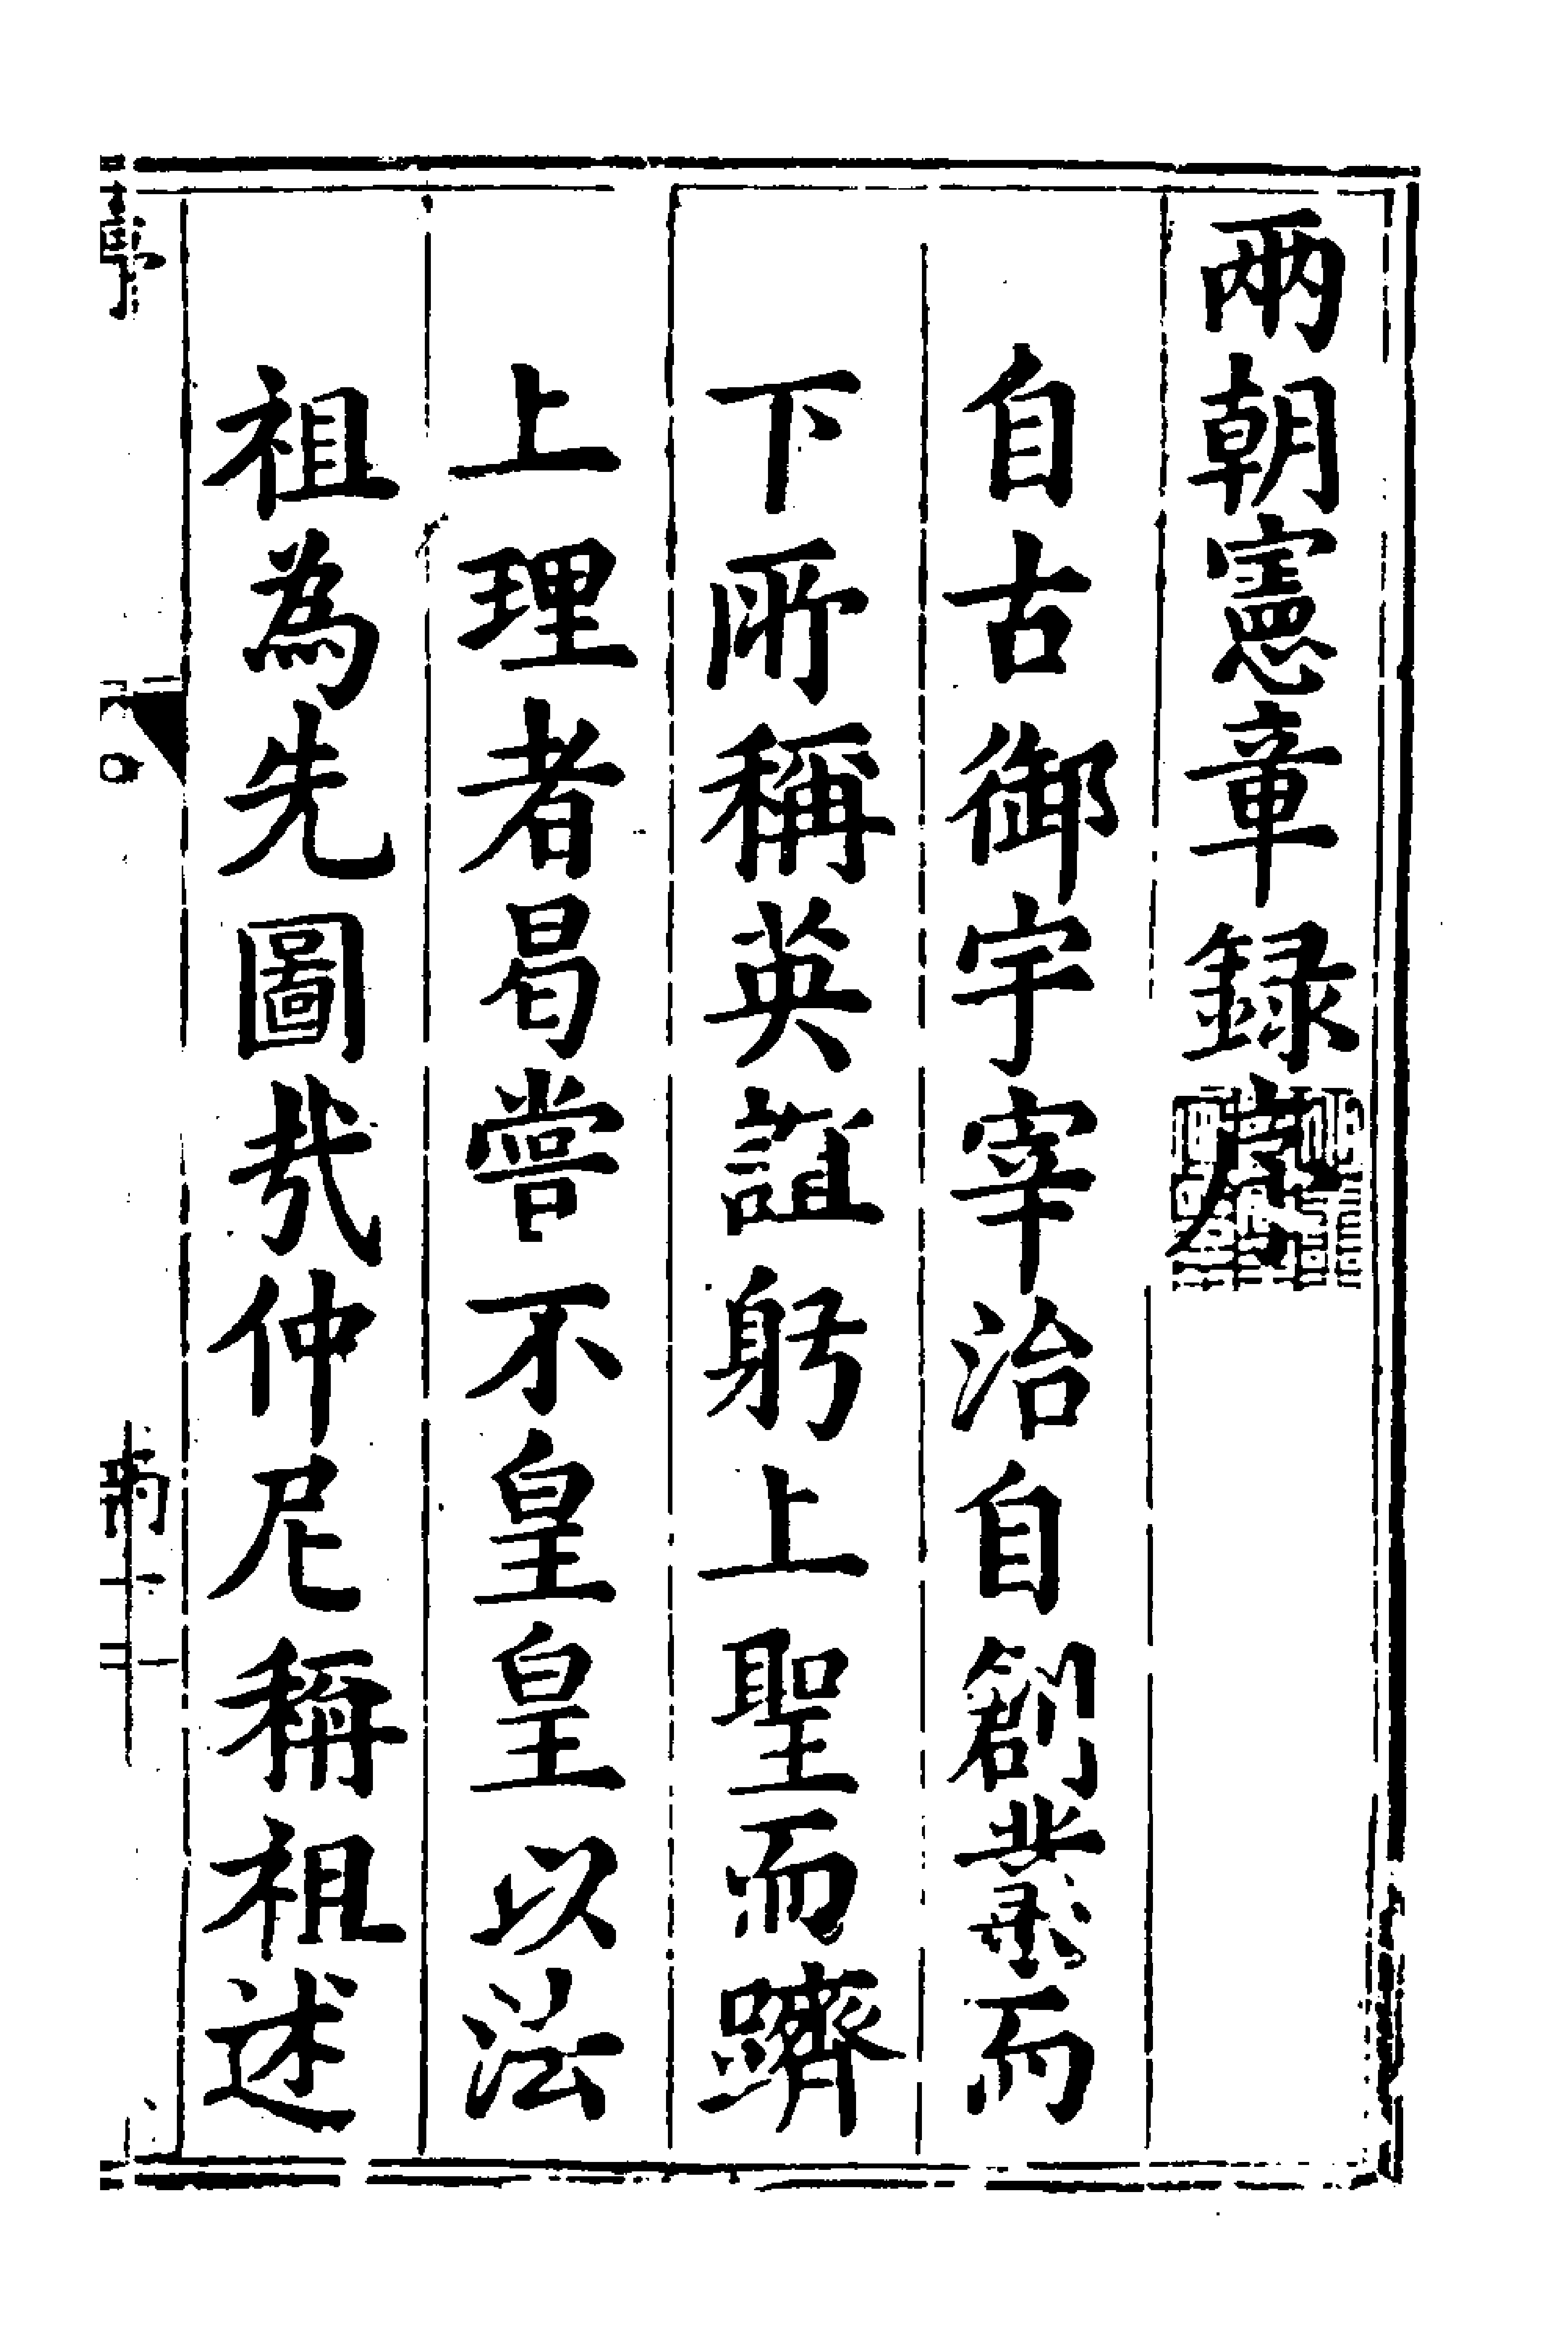 兩朝憲章録序
自古御宇宰治自創業而
下所稱英誼躬上聖而躋
上理者曷嘗不皇皇以法
祖為先圖㦲仲尼稱祖述
序